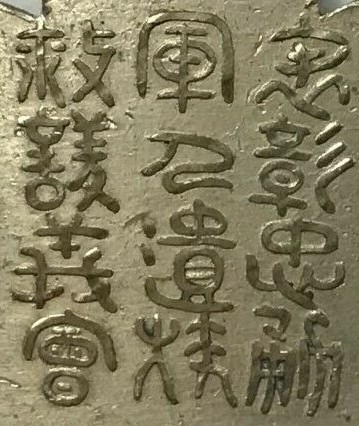 彰忠
軍人遺族
救護義會